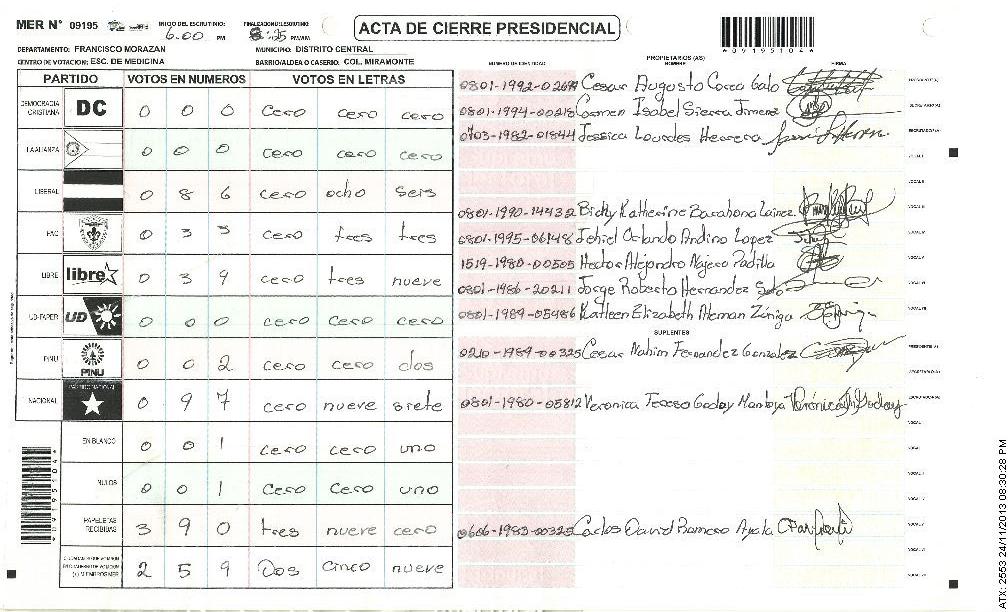 MER N° 09195
INICIO DEL ESCRUTINIO: 6:00 PM
8:25 PM/AM
ACTA DE CIERRE PRESIDENCIAL
*09195104*
DEPARTAMENTO: FRANCISCO MORAZAN MUNICIPIO: DISTRITO CENTRAL
CENTRO DE VOTACION: ESC. DE MEDICINA BARRIO/ALDEA O CASERIO: COL. MIRAMONTE
PARTIDO VOTOS EN NUMEROS VOTOS EN LETRAS
DEMOCRACIA CRISTIANA DC 0 0 0 cero cero cero
LA ALIANZA 0 0 0 cero cero cero
LIBERAL 0 8 6 cero ocho seis
PAC 0 3 3 cero tres tres
LIBRE libre 0 3 9 cero tres nueve
UD-FAPER UD 0 0 0 cero cero cero
PINU PINU 0 0 2 cero cero dos
NACIONAL PARTIDO NACIONAL 0 9 7 cero nueve siete
EN BLANCO 0 0 1 cero cero uno
NULOS 0 0 1 cero cero uno
PAPELETAS RECIBIDAS 3 9 0 tres nueve cero
2 5 9 Dos cinco nueve
PROPIETARIOS (AS)
NUMERO DE IDENTIDAD NOMBRE FIRMA
Cesar Augusto Correa Galo
0801-1994-00218 Carmen Isabel Sierra Jimenez
0703-1982-01844 Jessica Lourdes Herrera
0801-1990-14432 Bicky Katherine Barahona Lainez
0801-1995-06148 Jehiel Orlando Andino Lopez
1519-1980-00505 Hector Alejandro Najera Padilla
0801-1986-20211 Jorge Roberto Hernandez Soto
0801-1989-05486 Katleen Elizabeth Aleman Zúniga
SUPLENTES
0210-1989-00325 Cesar Nahim Fernandez Gonzalez
0801-1980-05812 Veronica Teresa Godoy Mondoya
0606-1983-00325 Carlos David Romero Ayala
*09195104*
ATX: 2553 24/11/2013 08:30:28 PM